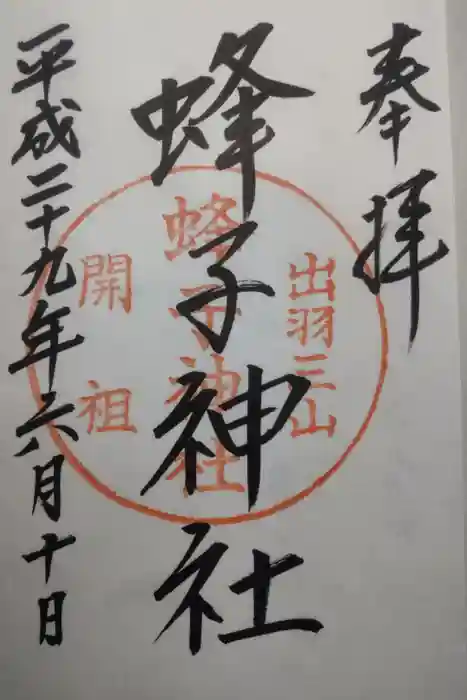 奉拝
出羽三山
蜂子神社
蜂子神社
開祖
平成二十九年六月十日